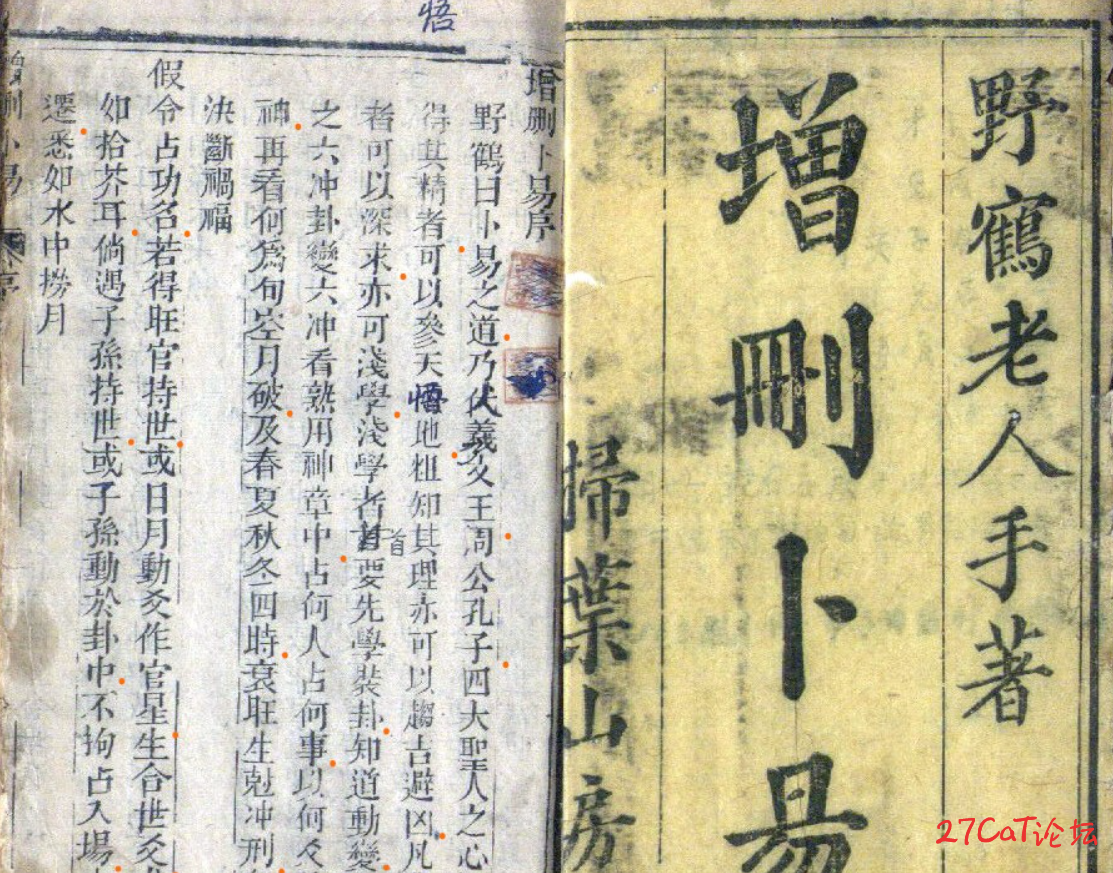 野鶴老人手著
增刪卜易
掃葉山房
悟
增刪卜易序
野鶴曰卜易之道乃伏羲文王周公孔子四大聖人之心
得其精者可以參天悟地粗知其理亦可以趨吉避凶凡
首
者可以深求亦可淺學淺學者首要先學裝卦知道動變
之六冲卦變六冲看熟用神章中占何人占何事以何爻
神再看何爲旬空月破及春夏秋冬四時衰旺生尅冲刑
決斷禍福
假令占功名若得旺官持世或日月動爻作官星生合世爻
如拾芥耳倘遇子孫持世或子孫動於卦中不拘占入場
遷悉如水中撈月
增刪卜易 序
27CaT论坛